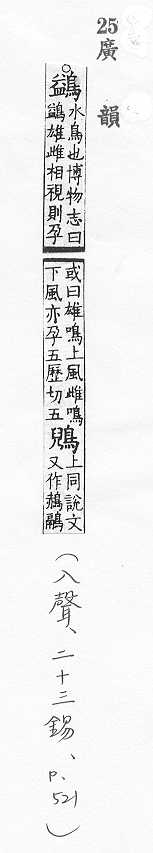 25廣韻
鷁水鳥也博物志曰
鷁雄雌相視則孕
或曰雄鳴上風雌鳴
下風亦孕五歷切五
鶂上同說文
又作鷊鷊
(入聲、二十三錫、p. 521)